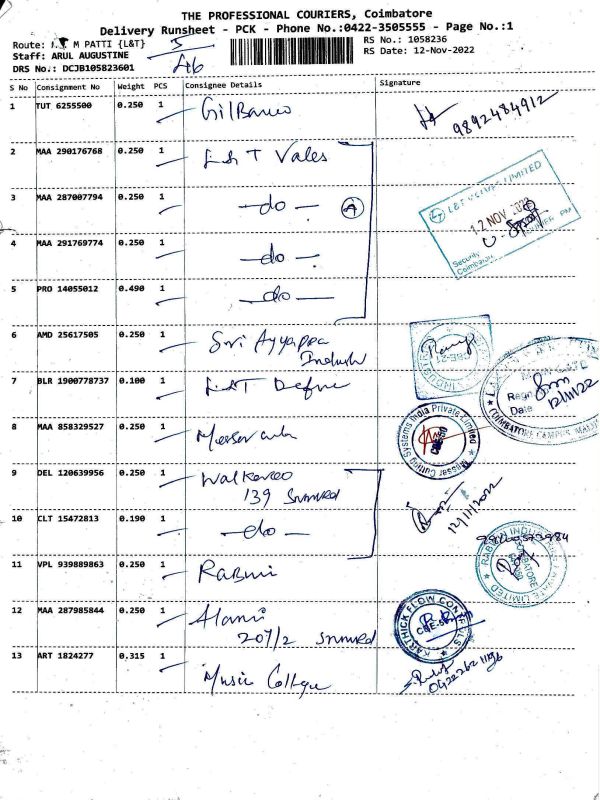 THE PROFESSIONAL COURIERS, Coimbatore
Delivery Runsheet - PCK - Phone No.:0422-3505555 - Page No.:1
Route: M PATTI {L&T}
RS No.: 1058236
Staff: ARUL AUGUSTINE
RS Date: 12-Nov-2022
DRS No.: DCJB105823601
S No Consignment No Weight PCS Consignee Details Signature
1 TUT 6255500 0.250 1
9892484912
2 MAA 290176768 0.250 1 L&T Vales
3 MAA 287007794 0.250 1 -do- A
L&T VALVES LIMITED
12 NOV 2022
Security
Coimbatore
4 MAA 291769774 0.250 1 -do-
5 PRO 14055012 0.490 1 -do-
6 AMD 25617505 0.250 1 Sri Ayyappa
7 BLR 1900778737 0.100 1 L&T
Date: 12/11/22
COIMBATORE CAMPUS
8 MAA 858329527 0.250 1
Messer Cutting Systems India Private Limited
9 DEL 120639956 0.250 1
139
12/11/2022
10 CLT 15472813 0.190 1 -do-
11 VPL 939889863 0.250 1
PRIVATE LIMITED
12 MAA 287985844 0.250 1
207/2
KARTHICK FLOW CONTROLS
13 ART 1824277 0.315 1 Music College